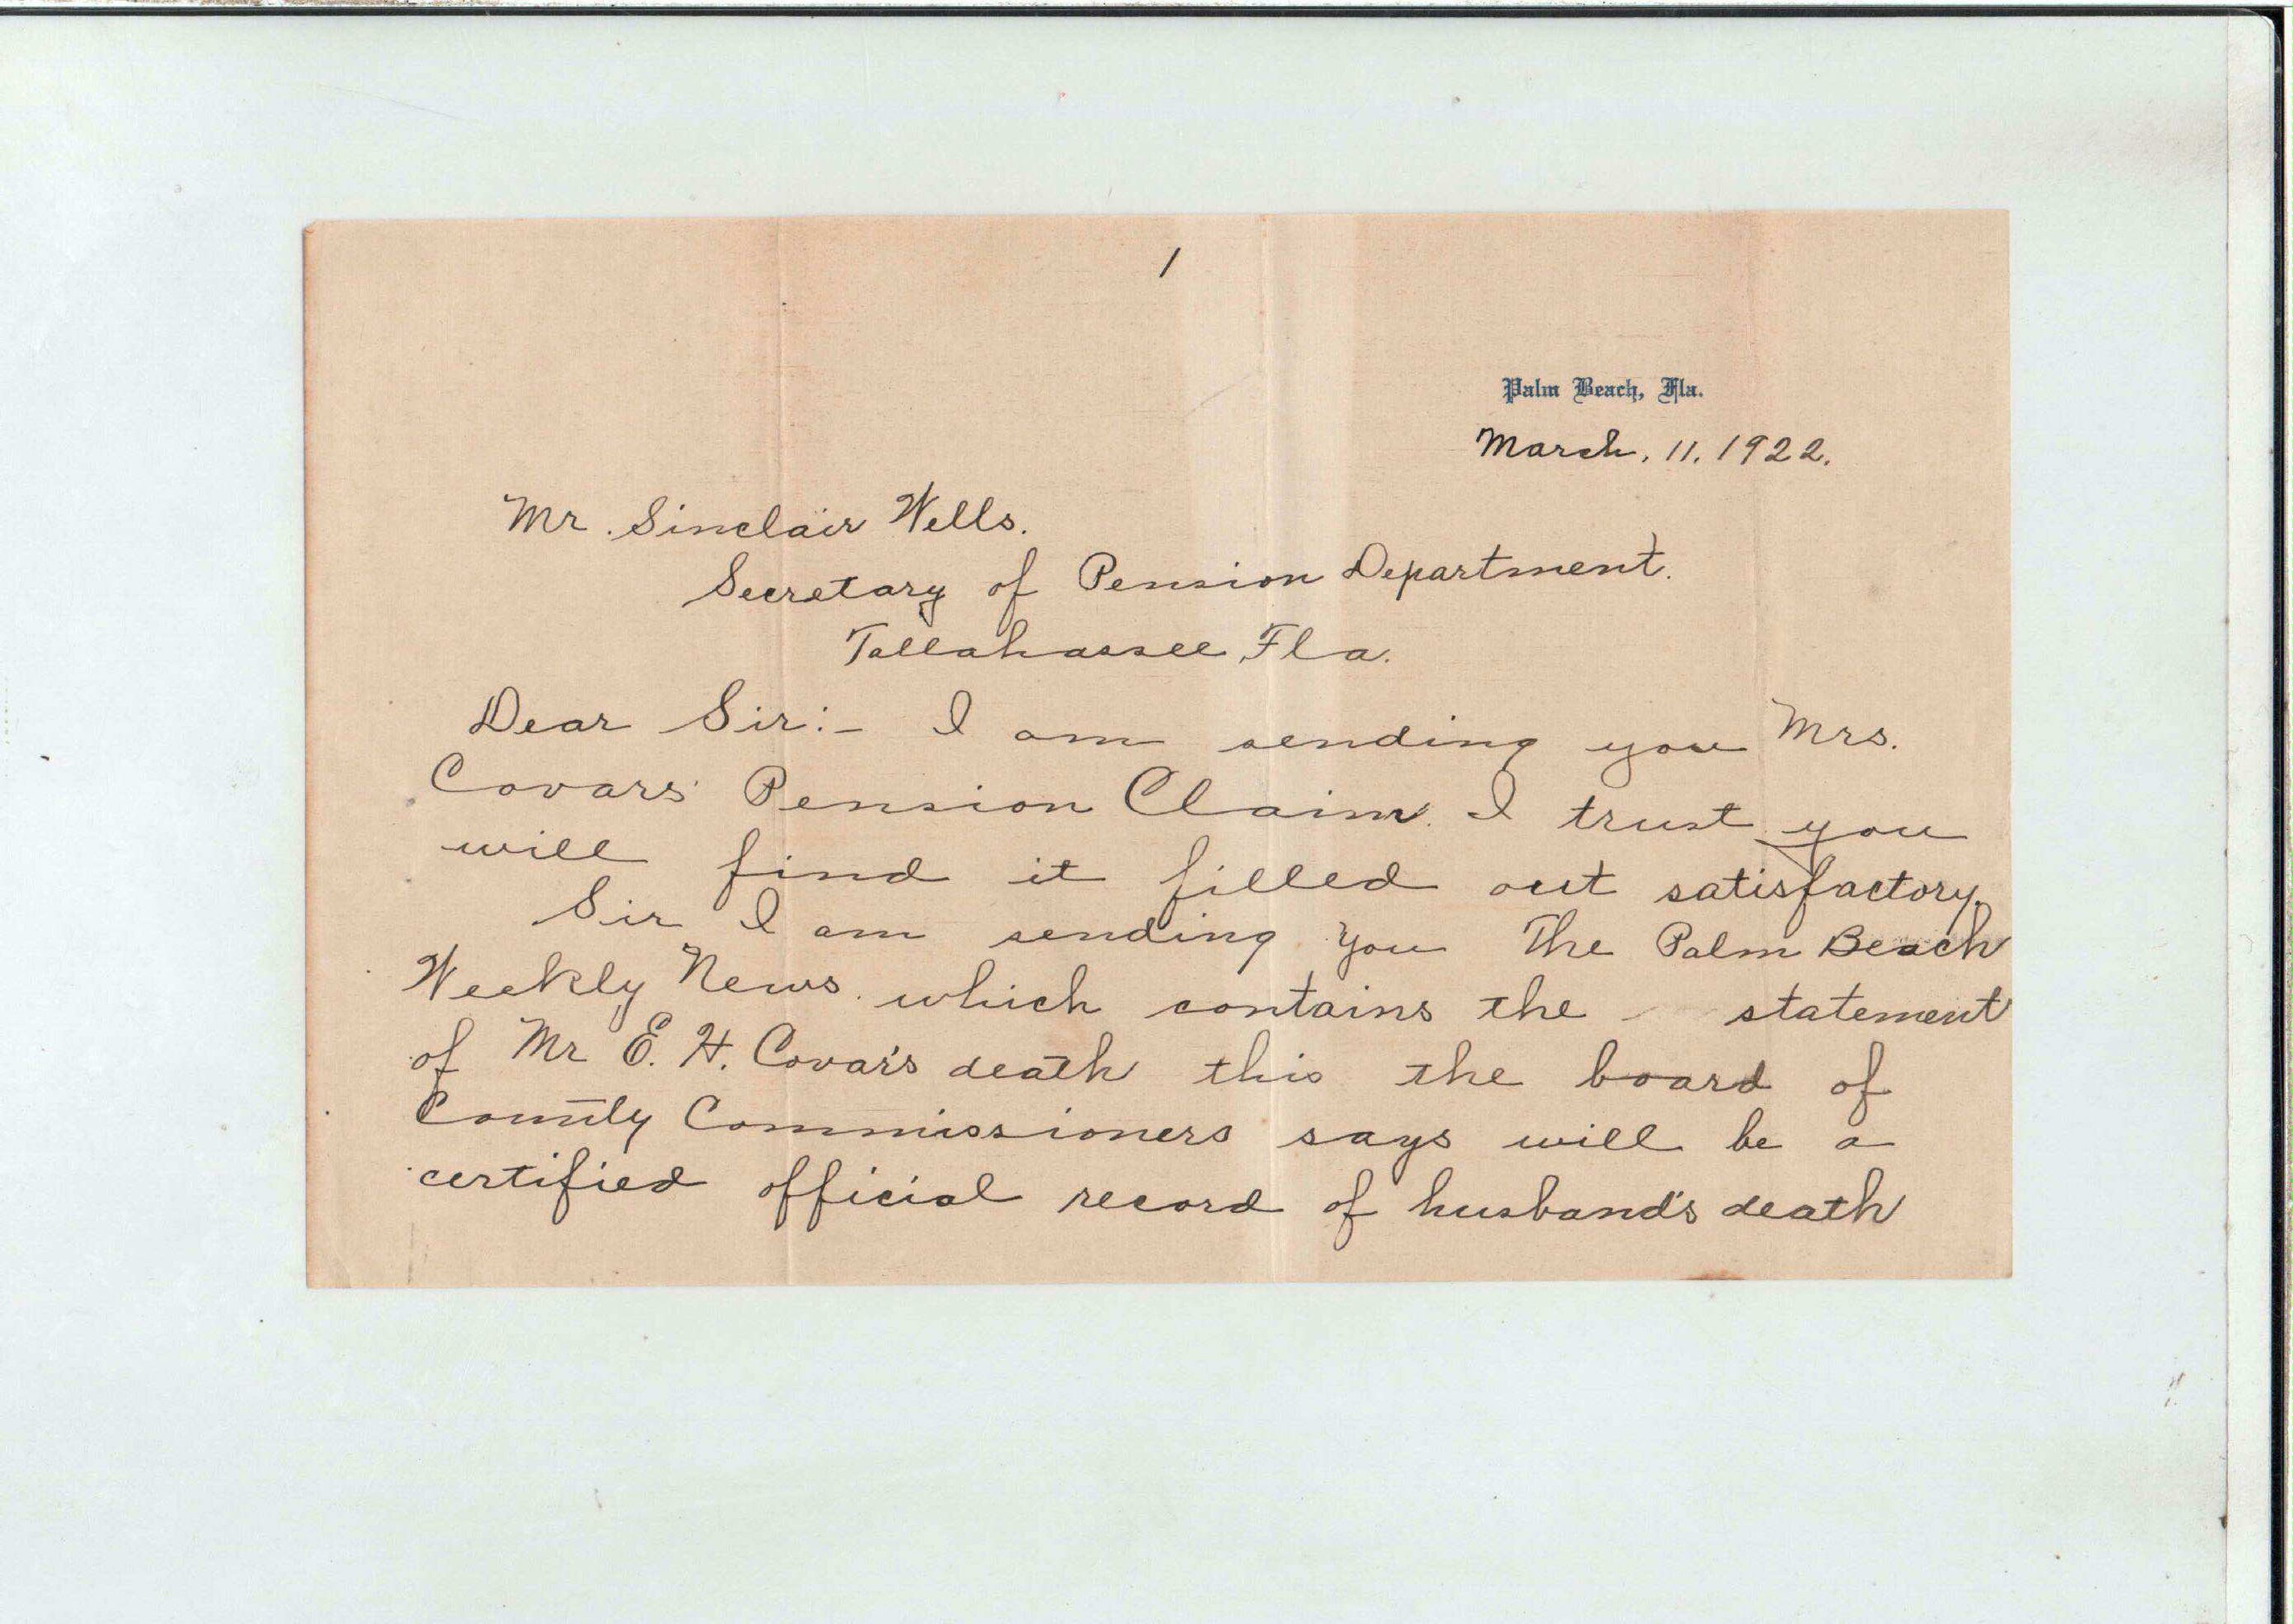 1
Palm Beach, Fla.
March. 11. 1922.
Mr. Sinclair Wells.
Secretary of Pension Department.
Tallahassee, Fla.
Dear Sir:- I am sending you Mrs.
Covars Pension Claim. I trust you
will find it filled out satisfactory.
Sir I am sending you The Palm Beach
Weekly News. which contains the statement
of Mr E. H. Covar's death this the board of
County Commissioners says will be a
certified official record of husband's death